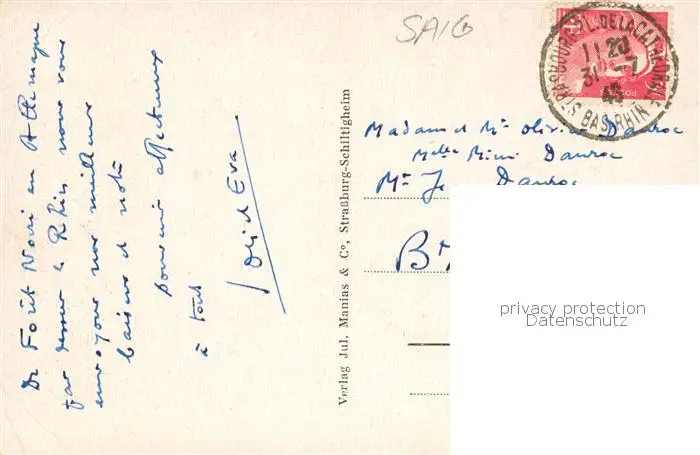 De Forêt Noire en Allemagne
par dessus le Rhin nous vous
envoyons nos meilleurs
baisers et notre
souvenir affectueux
à tous
et Eva
Verlag Jul. Manias & Cº, Straßburg-Schiltigheim
SAIG
STRASBOURG PL. DE LA CATHEDRALE
11 20
31 -7
BAS RHIN
Madame et Mr Olivier Dauroc
Melle Mimi Dauroc
Mr Je Dauroc
privacy protection
Datenschutz